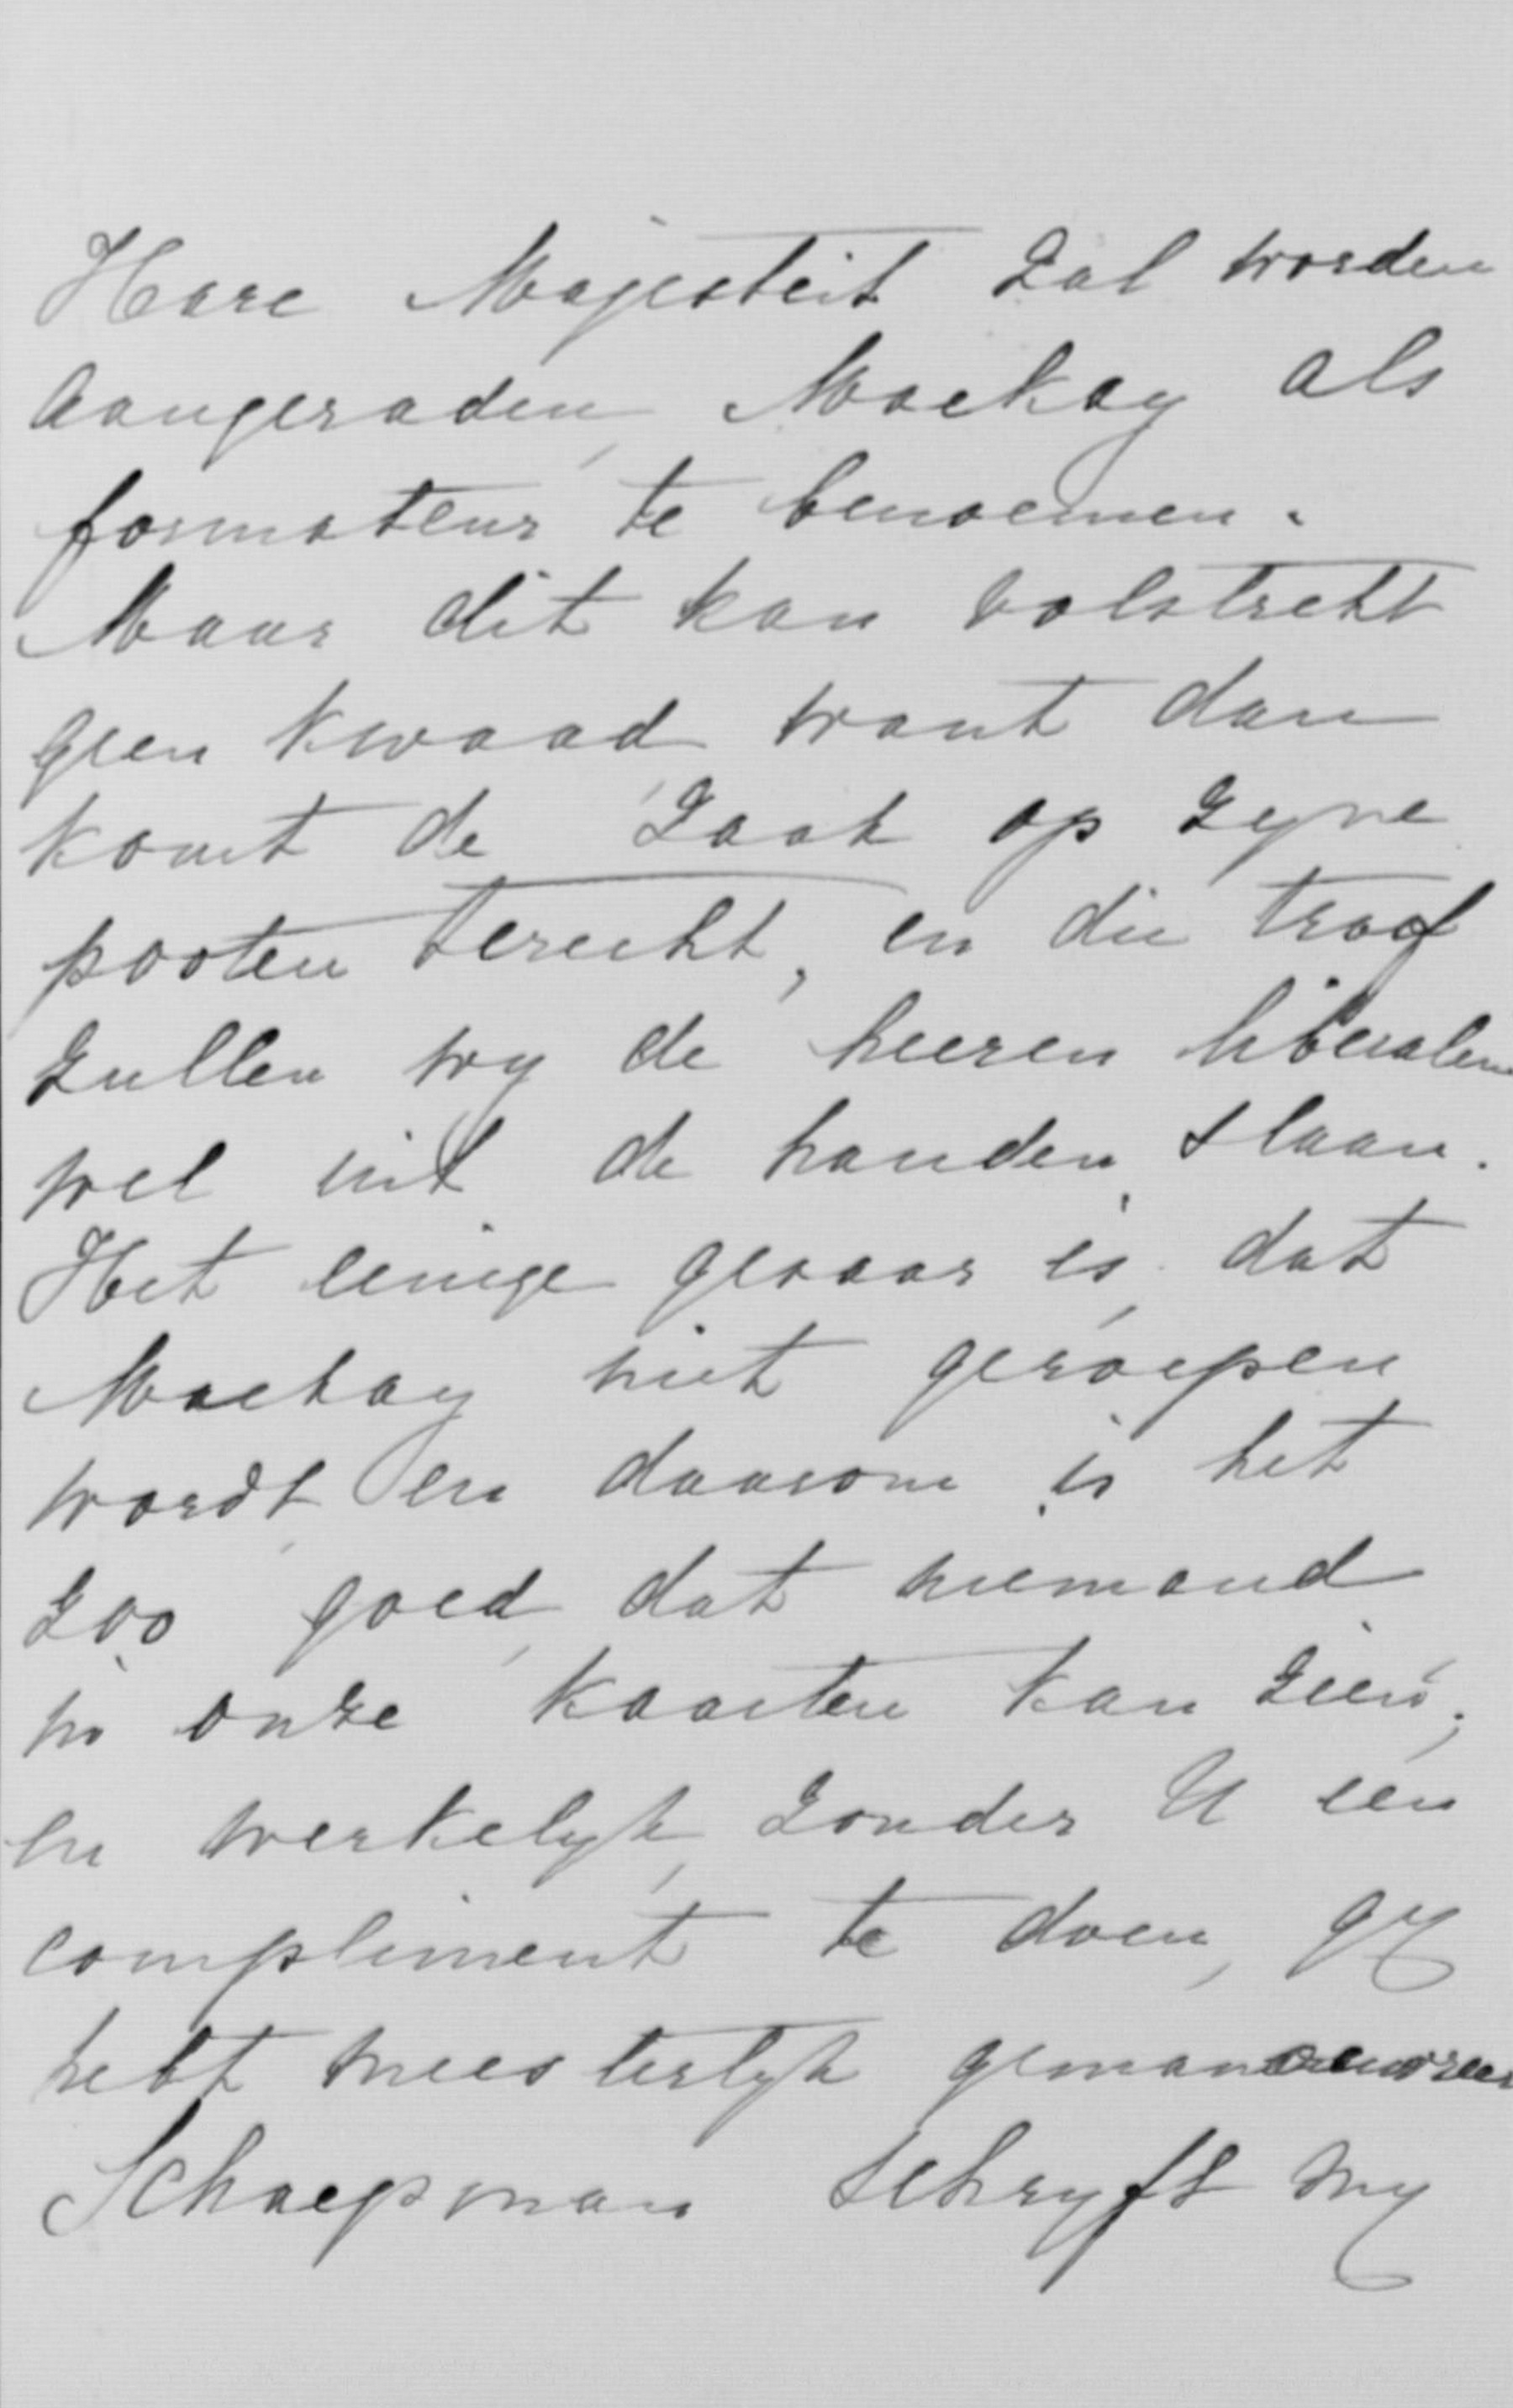 Hare Majesteit zal worden
aangeraden Mackay als
formateur te benoemen.
Maar dit kan volstrekt
geen kwaad want dan
komt de zaak op zyne
pooten terecht, en die troef
zullen wy de heeren liberalen
wel uit de handen slaan.
Het eenige gevaar is dat
Mackay niet geroepen
wordt en daarom is het
zoo goed dat niemand
in onze kaarten kan zien;
en werkelyk zonder U een
compliment te doen, gy
hebt meesterlyk
Schaepman schryft my